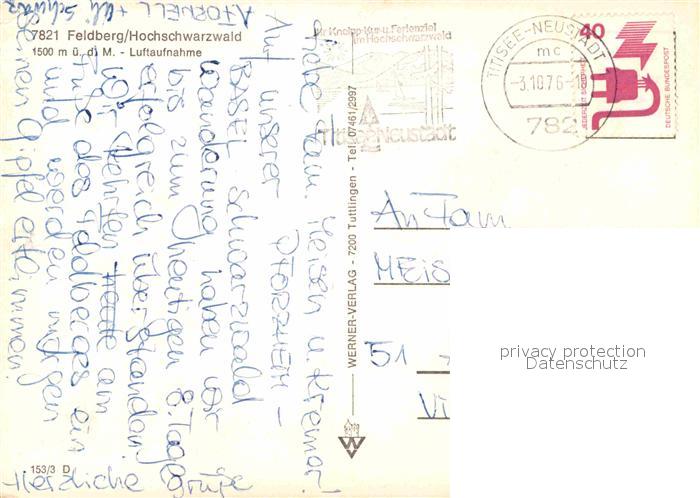 7821 Feldberg/Hochschwarzwald
1500 m ü. d. M. - Luftaufnahme
Ihr Kneipp-Kur-u. Ferienziel
im Hochschwarzwald
TITISEE-Neustadt
TITISEE-NEUSTADT
mc
-3.10.76-1
782
40
JEDERZEIT SICHERHEIT
DEUTSCHE BUNDESPOST
WERNER-VERLAG - 7200 Tuttlingen - Tel. 07461/2997
Liebe Fam. u.
Auf unserer PFORZHEIM -
BASEL Schwarzwald
wanderung haben wir
bis zum heutigen 8. Tage
erfolgreich überstanden.
Wir stehen heute am
Fuße des Feldbergs ein
und werden morgen
seinen Gipfel erklimmen.
Herzliche Grüße
An Fam
MEIS
51
Vi
153/3 D
privacy protection
Datenschutz